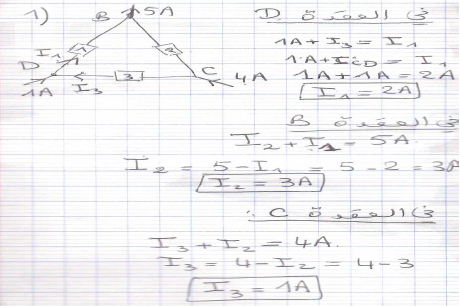 1)
B
5A
I₁
1
2
D
3
C
1A
I₃
4A
في العقدة D
1A + I₃ = I₁
1A + I_CD = I₁
1A + 1A = 2A
I₁ = 2A
في العقدة B
I₂ + I₁ = 5A
I₂ = 5 - I₁ = 5 - 2 = 3A
I₂ = 3A
في العقدة C :
I₃ + I₂ = 4A.
I₃ = 4 - I₂ = 4 - 3
I₃ = 1A